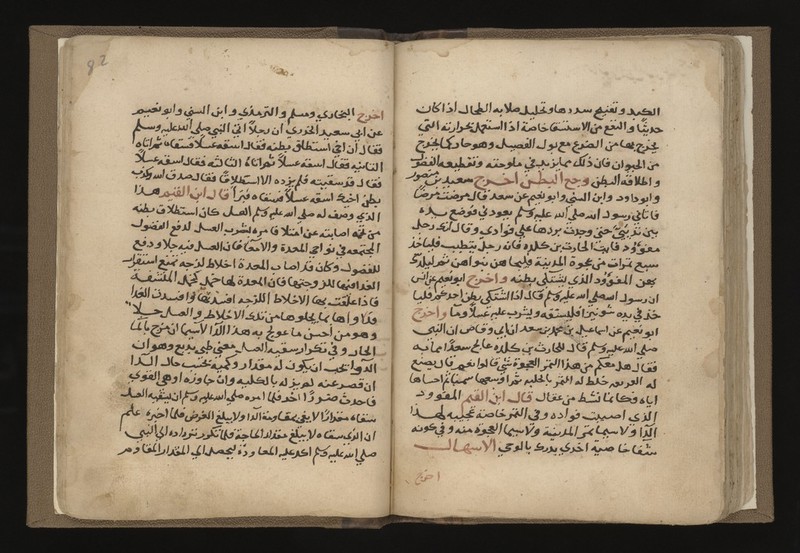 الكبد وتفتيح سددها وتحليل صلابه الطحال اذا كان
حديثا والنفع من الاستسقا خاصة اذا استعمل بحرارته التي
يخرج بها من الضرع مع بول الفصيل وهو حار كما يخرج
من الحيوان فان ذلك مما يزيد في ملوحته وتقطيعه الفضول
واطلاقه البطن وجع البطن اخرج سعيد بن منصور
وابو داود وابن السني وابو نعيم عن سعد قال مرضت مرضا
فاتاني رسول الله صلي الله عليه وسلم يعودني فوضع يده
بين ثديي حتي وجدت بردها علي فوادي وقال انك رجل
مفوود فات الحارث بن كلده فانه رجل يتطبب فلياخذ
سبع تمرات من عجوة المدينة فليجاهن بنواهن ثم ليلدك
بهن المفوود الذي يشتكي بطنه واخرج ابو نعيم عن انس
ان رسول الله صلي الله عليه وسلم قال اذا اشتكي بطن احدكم فليا
خذ في يده شونيزا فليستفه ويشرب عليه عسلا وما واخرج
ابو نعيم عن اسماعيل بن محمد بن سعد ابن ابي وقاص ان النبي
صلي الله عليه وسلم قال للحارث بن كلده عالج سعدا مما به
فقال هل معكم من هذا التمر العجوة شي قالوا نعم قال فصنع
له الفريقه خلط له التمر بالحلبه ثم اوسعها سمنا ثم احساها
اياه فكانما نشط من عقال قال ابن القيم المفوود
الذي اصيبت فواده وفي التمر خاصة عجيبه لهذا
الدا ولا سيما تمر المدينة ولا سيما العجوة منه وفي كونه
سبعا خاصية اخري يدرك بالوحي الاسهال
اخرج
82
اخرج البخاري ومسلم والترمذي وابن السني وابو نعيم
عن ابي سعيد الخدري ان رجلا اتي النبي صلي الله عليه وسلم
فقال ان اخي استطلق بطنه فقال اسقه عسلا فسقاه ثم اتاه
الثانيه فقال اسقه عسلا ثم اتاه الثالثه فقال اسقه عسلا
فقال قد سقيته فلم يزده الا استطلاقا فقال صدق الله وكذب
بطن اخيك اسقه عسلا فسقاه فبرا قال ابن القيم هذا
الذي وصف له صلي الله عليه وسلم العسل كان استطلاق بطنه
من تخمه اصابته عن امتلا فامره بشرب العسل لدفع الفضول
المجتمعه في نواحي المعدة والامعا فان العسل فيه جلا ودفع
للفضول وكان قد اصاب المعدة اخلاط لزجه تمنع استقرار
الغذا فيها للزوجتها فان المعدة لها خمل كخمل المنشفة
فاذا علقت بها الاخلاط اللزجه افسدتها وافسدت الغذا
فدواوها بما يجلوها من تلك الاخلاط والعسل جلا
وهو من احسن ما عولج به هذا الدا لاسيما ان مزج بالما
الحار وفي تكرار سقيه العسل معني طبي بديع وهو ان
الدوا يجب ان يكون له مقدار وكميه بحسب حال الدا
ان قصر عنه لم يزله بالكليه وان جاوزه اوهي القوي
فاحدث ضررا اخر فلما امره صلي الله عليه وسلم ان يسقيه العسل
سقاه مقدارا لا يفي بمقاومة الدا ولا يبلغ الغرض فلما اخبره علم
ان الذي سقاه لا يبلغ مقدار الحاجة فلما تكرر ترداده الي النبي
صلي الله عليه وسلم اكد عليه المعاودة ليصل الي المقدار المقاوم